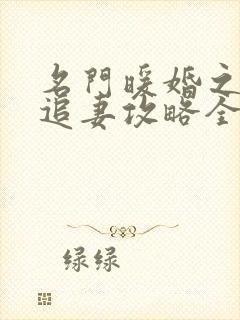 名門暖婚之
追妻攻略全
绿绿